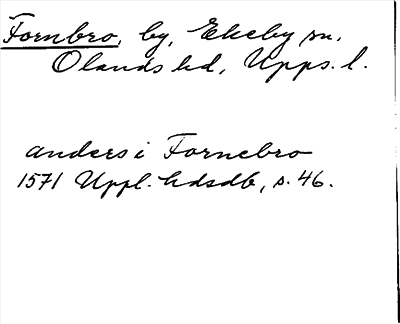 Fornbro, by, Ekeby sn,
Olands hd, Upps. l.
anders i Fornebro
1571 Uppl. hdsdb, s. 46.